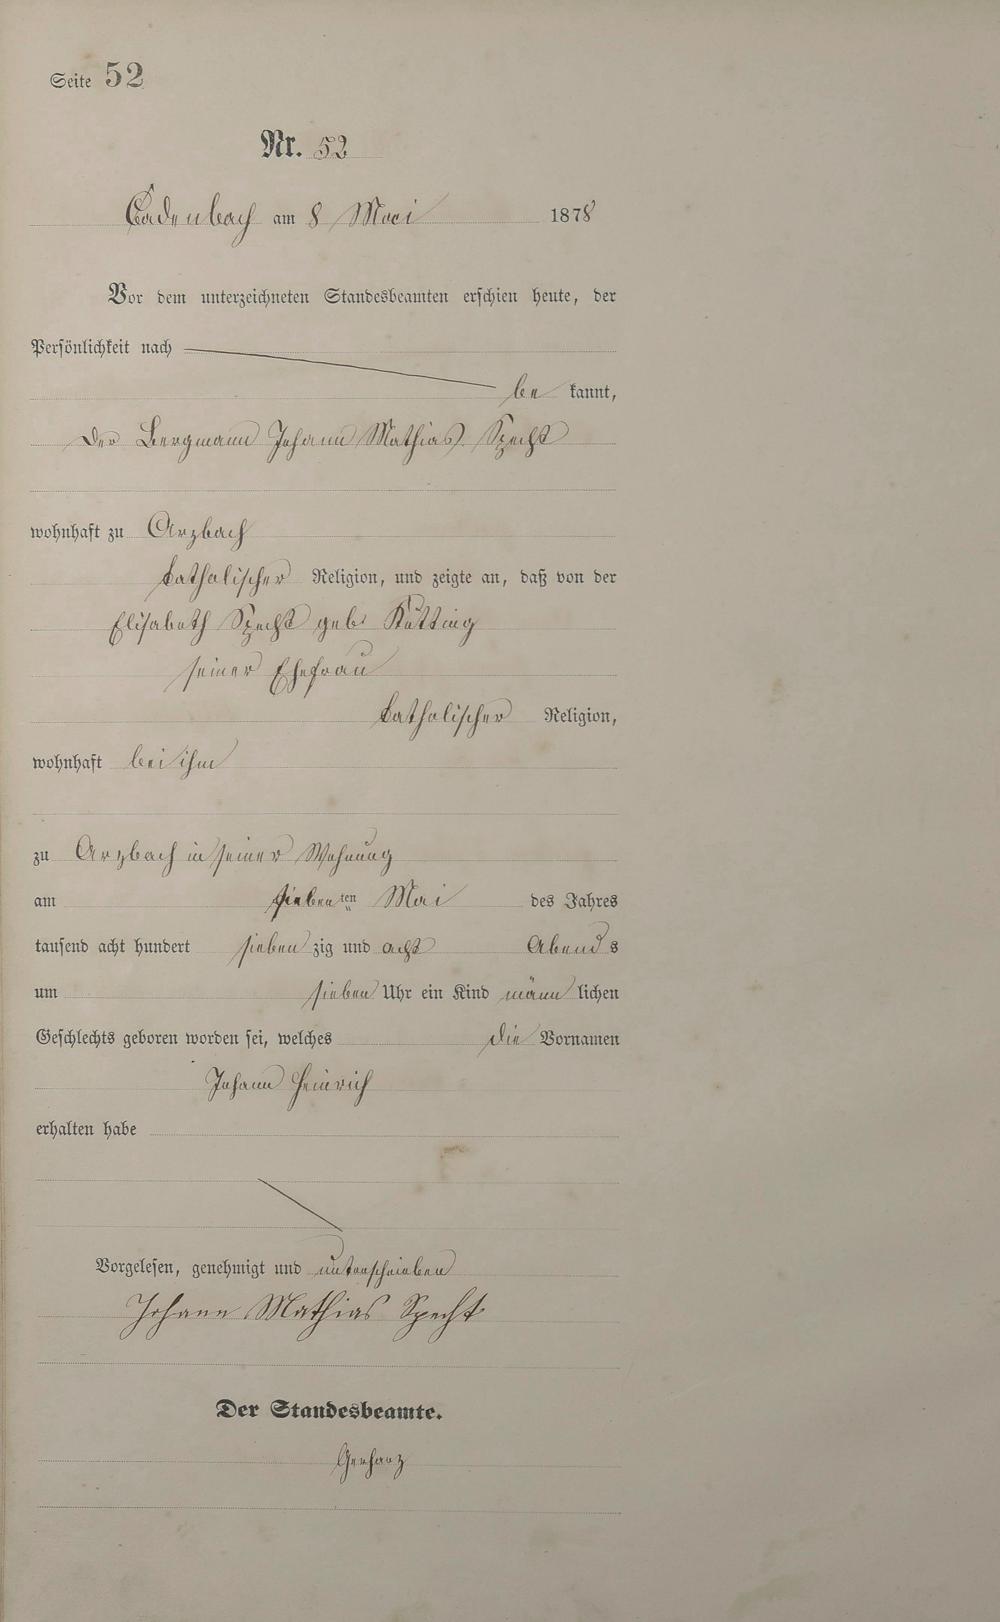 Seite 52
Nr. 52
Cadenbach am 8 Mai 1878
Vor dem unterzeichneten Standesbeamten erschien heute, der
Persönlichkeit nach
be kannt,
der Bergmann Johann Mathias Specht
wohnhaft zu Arzbach
katholischer Religion, und zeigte an, daß von der
Elisabeth Specht geb. Kütting
seiner Ehefrau
katholischer Religion,
wohnhaft bei ihm
zu Arzbach in seiner Wohnung
am siebenten Mai des Jahres
tausend acht hundert sieben zig und acht Abends
um sieben Uhr ein Kind männlichen
Geschlechts geboren worden sei, welches die Vornamen
Johann Heinrich
erhalten habe
Vorgelesen, genehmigt und unterschrieben
Johann Mathias Specht
Der Standesbeamte.
Gerharz